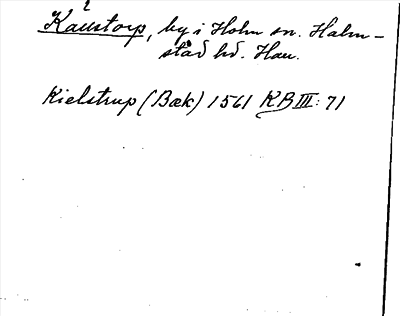 2
Kaustorp, by i Holm sn. Halm-
stad hd. Hall.
Kielstrup (Bæk) 1561 KB III: 71